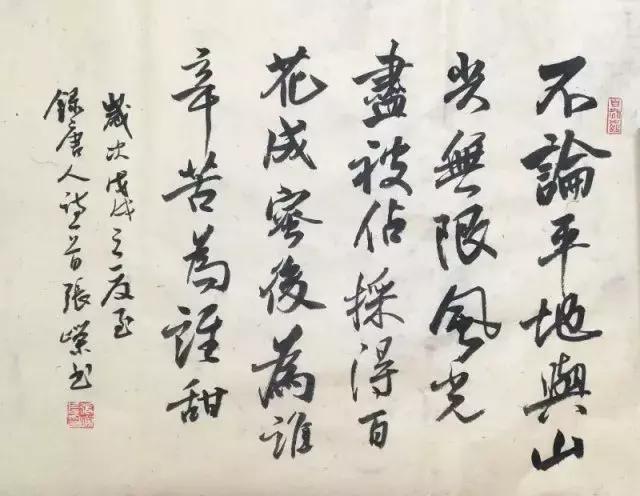 不論平地與山
尖無限風光
盡被佔採得百
花成蜜後為誰
辛苦為誰甜
歲次戊戌之夏至
錄唐人詩一首張榮書